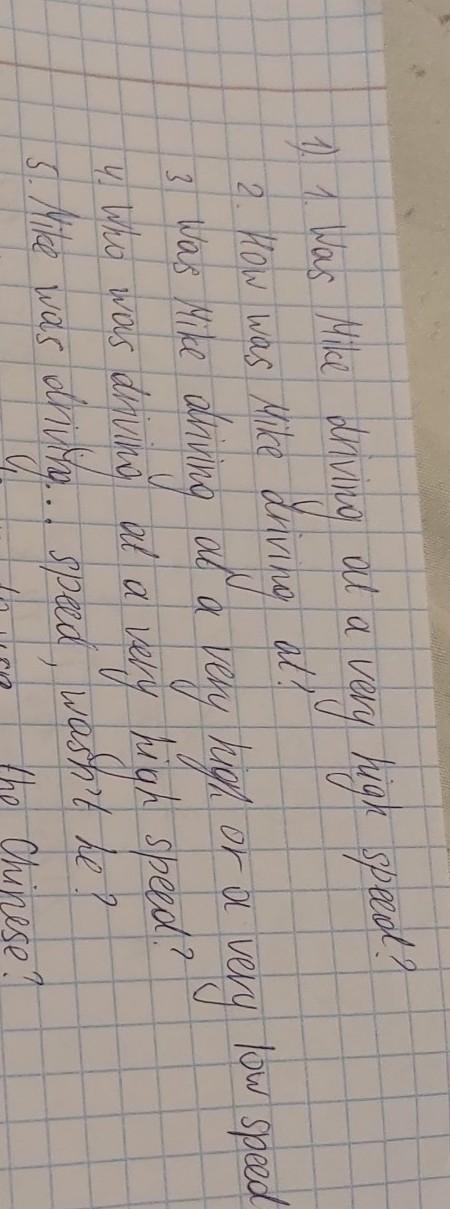 1). 1. Was Mike driving at a very high speed?
2. How was Mike driving at?
3 Was Mike driving at a very high or a very low speed
4. Who was driving at a very high speed?
5. Mike was driving... speed, wasn't he?
the Chinese?